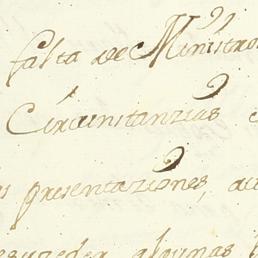 falta de Ministros
Circunstanzias
presentaziones,
algunas